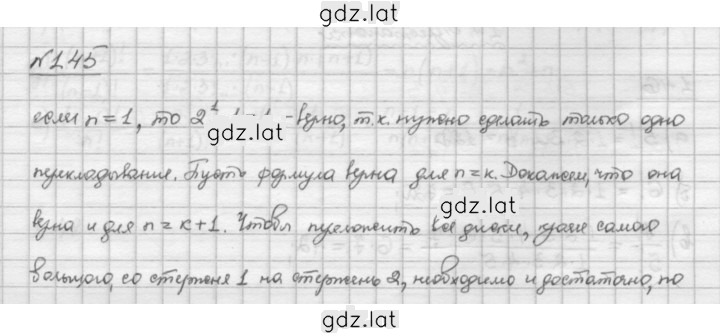 gdz.lat
№145
если n=1, то 2¹ -верно, т.к. нужно сделать только одно
gdz.lat
перекладывание. Пусть формула верна для n=k. Докажем, что она
gdz.lat
верна и для n=k+1. Чтобы переложить все диски, кроме самого
большого, со стержня 1 на стержень 2, необходимо и достаточно, по
gdz.lat